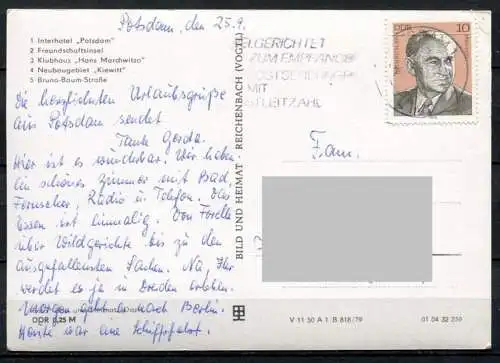 Potsdam, den 25.9.
1 Interhotel „Potsdam"
2 Freundschaftsinsel
3 Klubhaus „Hans Marchwitza"
4 Neubaugebiet „Kiewitt"
5 Bruno-Baum-Straße
Die herzlichsten Urlaubsgrüße
aus Potsdam sendet
Tante Gerda.
Hier ist es wunderbar. Wir haben
ein schönes Zimmer mit Bad,
Fernseher, Radio u Telefon. Das
Essen ist einmalig. Von Forelle
über Wildgerichte bis zu den
ausgefallensten Sachen. Na, Ihr
werdet es ja in Dresden erleben.
Morgen geht es nach Berlin.
Heute war eine Schiffsfahrt.
DDR 0,25 M
BILD UND HEIMAT · REICHENBACH (VOGTL)
GERICHTET
ZUM EMPFANG
POSTSENDUNGEN
MIT
LEITZAHL
DDR
10
Fam.
V 11 50 A 1 B 818/79
01 04 32 230